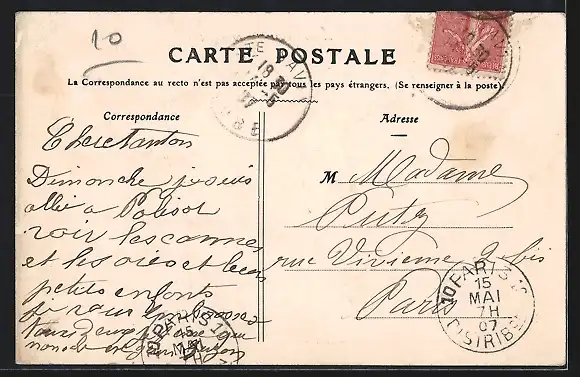 10
CARTE POSTALE
La Correspondance au recto n'est pas acceptée par tous les pays étrangers. (Se renseigner à la poste)
Correspondance
Chere tanton
Dimanche je suis
allé a Polisot
voir les cannes
et les oies et leurs
petits enfants
je vous embrasse
tous deux
Adresse
M Madame
Putz
rue Vivienne 2 bis
Paris
PARIS
15
MAI
7H
07
DISTRIB
PARIS
15
MAI